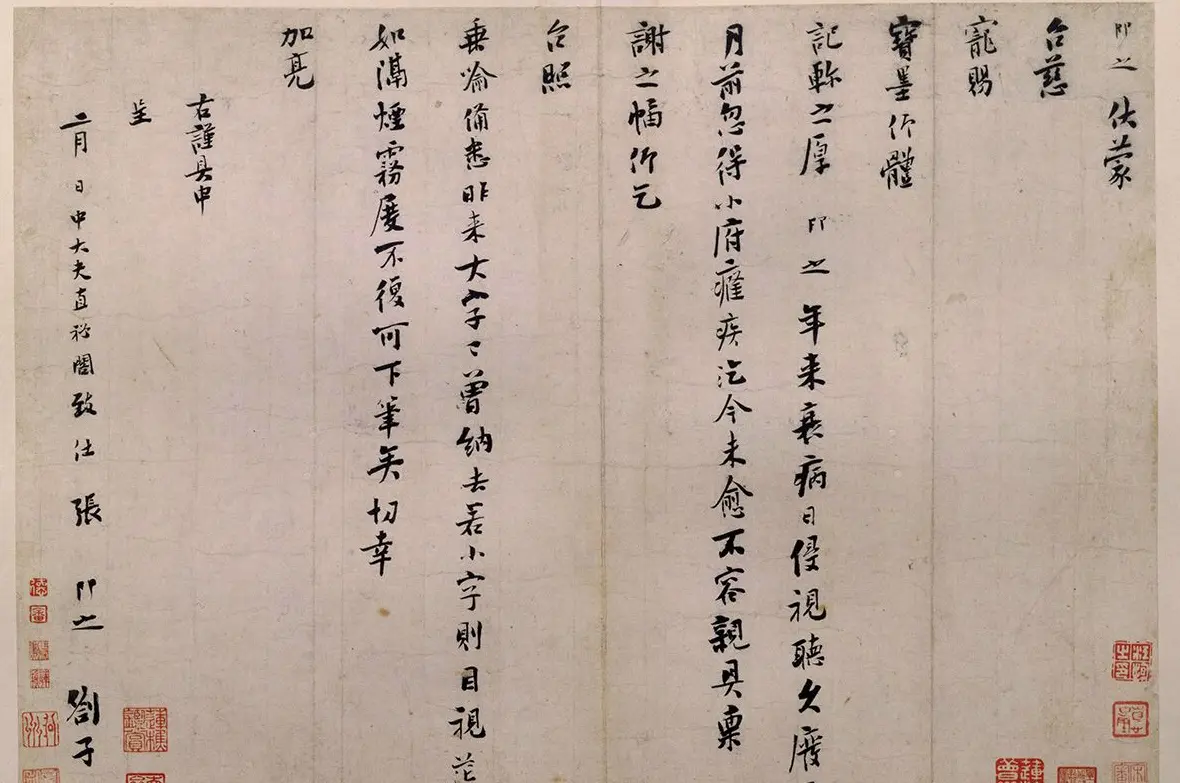 即之 伏蒙
台慈
寵賜
寶墨仰體
記軫之厚 即之 年来衰病日侵視聽久廢
月前忽得小府癃疾迄今未愈不容親具稟
謝之幅仰乞
台照
垂諭備悉昨来大字已曾納去若小字則目視茫
如滿煙霧屢不復可下筆矣切幸
加亮
右謹具申
呈
二月 日中大夫直祕閣致仕 張 即之 劄子